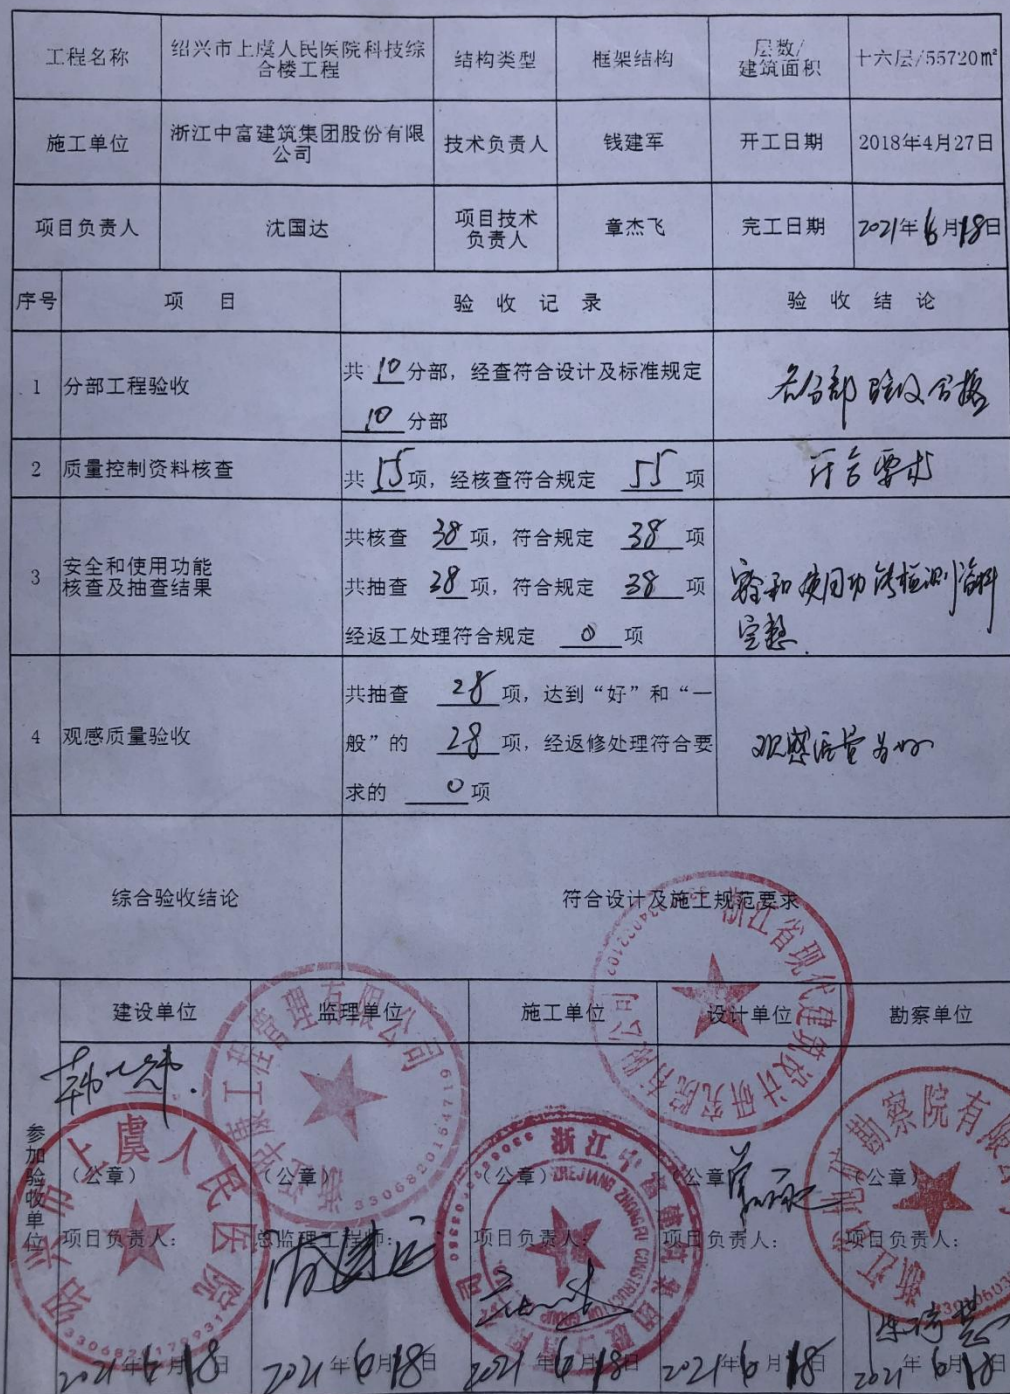 工程名称
绍兴市上虞人民医院科技综
合楼工程
结构类型
框架结构
层数/
建筑面积
十六层/55720㎡
施工单位
浙江中富建筑集团股份有限
公司
技术负责人
钱建军
开工日期
2018年4月27日
项目负责人
沈国达
项目技术
负责人
章杰飞
完工日期
2021年6月18日
序号
项 目
验 收 记 录
验 收 结 论
1
分部工程验收
共 10 分部，经查符合设计及标准规定
10 分部
各分部验收合格
2
质量控制资料核查
共 55 项，经核查符合规定 55 项
符合要求
3
安全和使用功能
核查及抽查结果
共核查 38 项，符合规定 38 项
共抽查 38 项，符合规定 38 项
经返工处理符合规定 0 项
安全和使用功能检测资料
完整.
4
观感质量验收
共抽查 28 项，达到“好”和“一
般”的 28 项，经返修处理符合要
求的 0 项
观感质量为好
综合验收结论
符合设计及施工规范要求
参加验收单位
建设单位
监理单位
施工单位
设计单位
勘察单位
（公章）
（公章）
（公章）
（公章）
（公章）
项目负责人：
总监理工程师：
项目负责人：
项目负责人：
项目负责人：
2021年6月18日
2021年6月18日
2021年6月18日
2021年6月18日
2021年6月18日
绍兴市上虞人民医院
工程管理有限公司
浙江中富建筑集团股份有限公司
ZHEJIANG ZHONGFU CONSTRUCTION GROUP
浙江省现代建筑设计研究院有限公司
勘察院有限公司